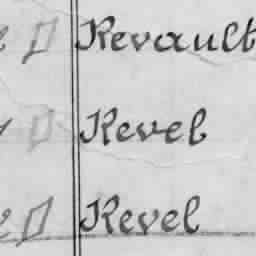 Revault
Revel
Revel